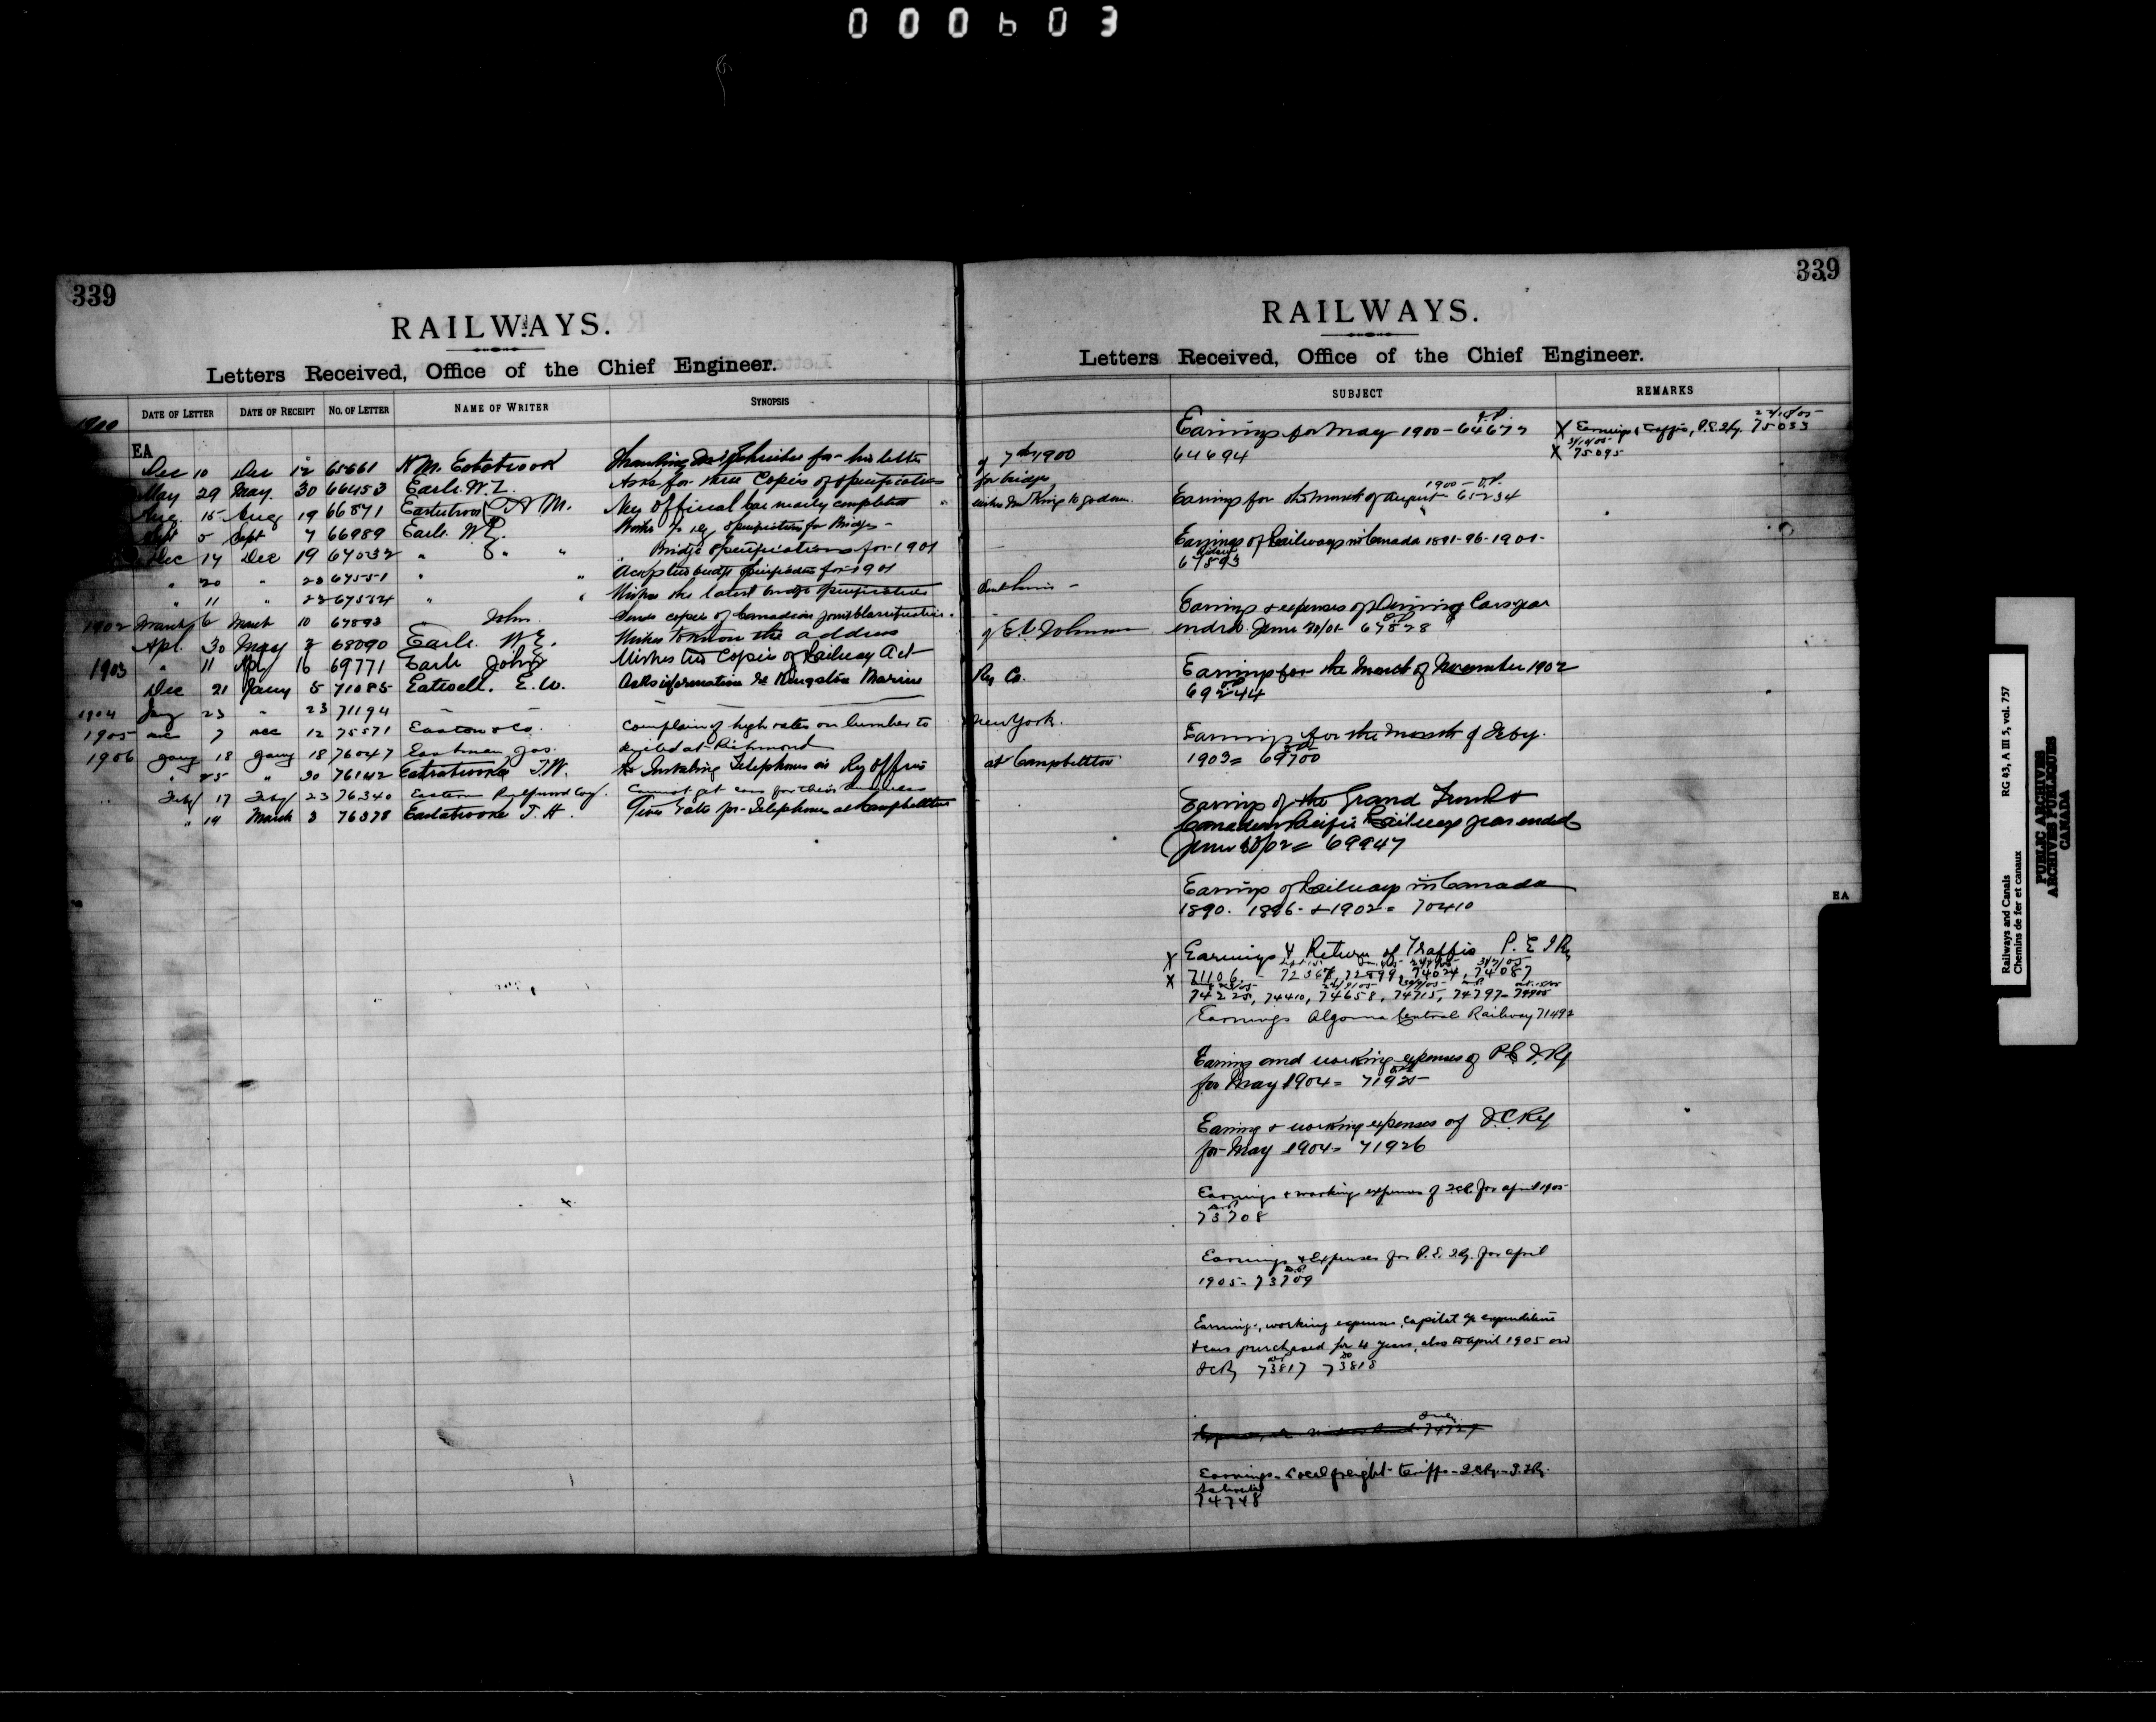 000603
339
RAILWAYS.
Letters Received, Office of the Chief Engineer.
DATE OF LETTER DATE OF RECEIPT NO. OF LETTER NAME OF WRITER SYNOPSIS
1900
EA
Dec 10 Dec 12 65661 for his letter of 7th 1900
May 29 May 30 66453 Earle. W.L. Asks for three Copies of specifications for bridges
Aug. 15 Aug 19 66871 A M. New official car nearly completed wishes Mr King to go down.
Sept 5 Sept 7 66989 Earle. W. specifications for Bridges -
Dec 14 Dec 19 " " " Bridge specifications for 1901
" 20 " 23 67551 " " bridge specification for 1901
" 11 " 23 67534 " " Wishes the latest bridge specifications
1902 March 6 March 10 67893 " John Sends copies of Canadian joint Classification.
Apl. 30 May 2 68090 Earle. W.E. Wishes to know the address of E.C. Johnson
1903 " 11 Apl 16 69771 Earle John Wishes two Copies of Railway Act
Dec 21 Jany 5 71085 Eatwell. E.W. Asks information re Kingston Marine Ry Co.
1904 Jany 23 " 23 71194
1905 Dec 7 Dec 12 75571 Easton & Co. Complain of high rates on lumber to New York.
1906 Jany 18 Jany 18 76047 Eastman Jas. at Richmond
" 25 " 30 76142 T.W. Re Installing Telephones in Ry Offices at Campbellton
" Feby 17 Feby 23 76340 Eastern Railwood Coy. Cannot get cars for their business
" 14 March 3 76378 T. H. Gives rate for Telephones at Campbellton
339
RAILWAYS.
Letters Received, Office of the Chief Engineer.
SUBJECT REMARKS
Earnings for May 1900 - 64672
64694
X Earnings & Traffic, P.E.I.Ry. 75033
31/10/05
X 75095
1900
Earnings for the month of August 65234
Earnings of Railways in Canada 1891-96-1901-
67593
Earnings & expenses of Dining Cars year
ended June 30/01 67828
Earnings for the month of November 1902
69244
Earnings for the month of Feby.
1903 = 69700
Earnings of the Grand Trunk &
Canadian Pacific Railways year ended
June 30/02 = 69947
Earnings of Railways in Canada
1890. 1896. & 1902 = 70410
X Earnings & Return of Traffic P. E I Ry
X 71106 - 72367, 72899, 74024, 74087
74225, 74410, 74658, 74715, 74797 - 74905
Earnings Algoma Central Railway 71492
Earnings and working expenses of P.E.I.Ry
for May 1904 = 71925
Earnings & working expenses of I.C.Ry
for May 1904 = 71926
Earnings & working expenses of I.C.R. for April 1905
73708
Earnings & Expenses for P.E.I.Ry. for April
1905 - 73709
Earnings, working expenses, Capital expenditure
& cars purchased for 4 years, also to April 1905 on
I.C.Ry 73817 73818
74727
Earnings - Local freight - tariffs - I.C.Ry. -
74748
EA
Railways and Canals RG 43, A III 5, vol. 757
Chemins de fer et canaux
PUBLIC ARCHIVES
ARCHIVES PUBLIQUES
CANADA